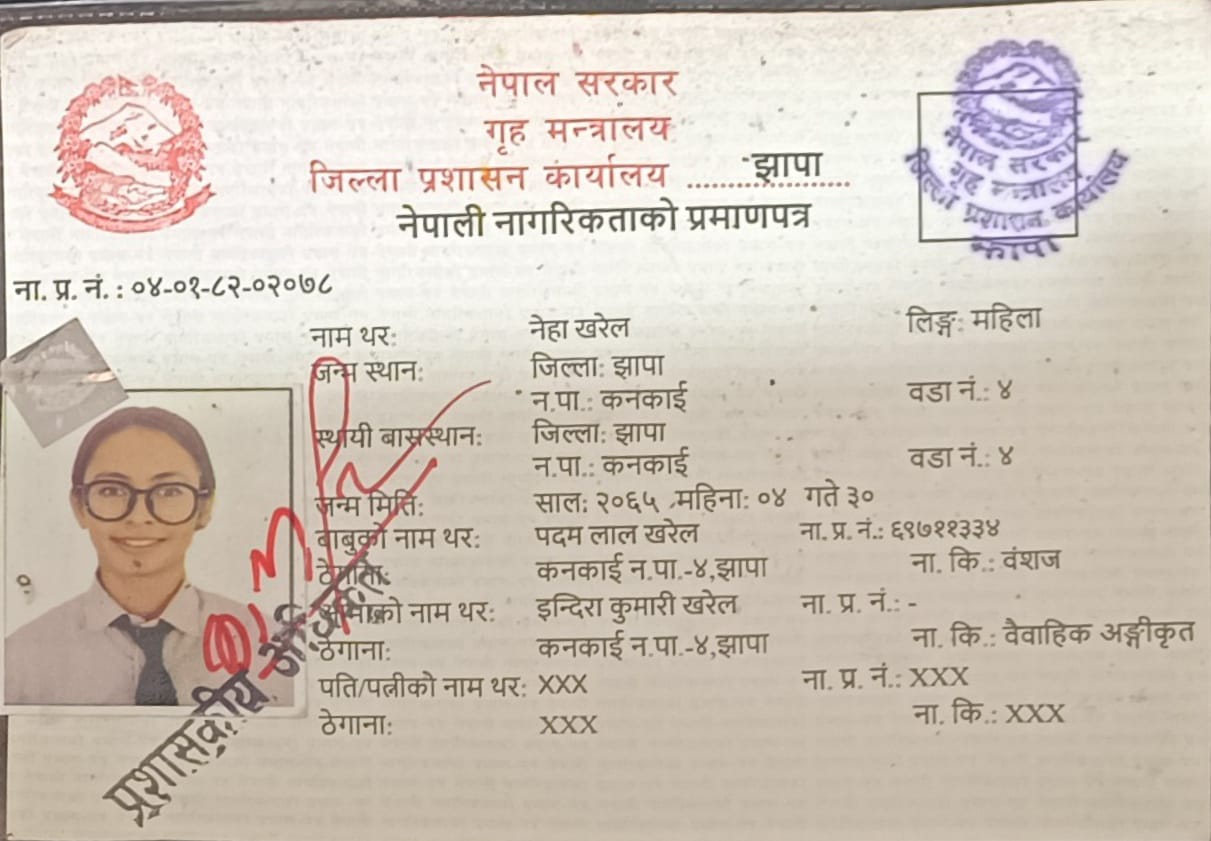 नेपाल सरकार
गृह मन्त्रालय
जिल्ला प्रशासन कार्यालय ............ झापा
नेपाली नागरिकताको प्रमाणपत्र
नेपाल सरकार
गृह मन्त्रालय
जिल्ला प्रशासन कार्यालय
झापा
ना. प्र. नं. : ०४-०१-८२-०२०७८
नाम थर: नेहा खरेल लिङ्ग: महिला
जन्म स्थान: जिल्ला: झापा
न.पा.: कनकाई वडा नं.: ४
स्थायी बासस्थान: जिल्ला: झापा
न.पा.: कनकाई वडा नं.: ४
जन्म मिति: साल: २०६५ महिना: ०४ गते ३०
बाबुको नाम थर: पदम लाल खरेल ना. प्र. नं.: ६९७११३३४
ठेगाना: कनकाई न.पा.-४,झापा ना. कि.: वंशज
आमाको नाम थर: इन्दिरा कुमारी खरेल ना. प्र. नं.: -
ठेगाना: कनकाई न.पा.-४,झापा ना. कि.: वैवाहिक अङ्गीकृत
पति/पत्नीको नाम थर: XXX ना. प्र. नं.: XXX
ठेगाना: XXX ना. कि.: XXX
प्रशासकीय अधिकृत